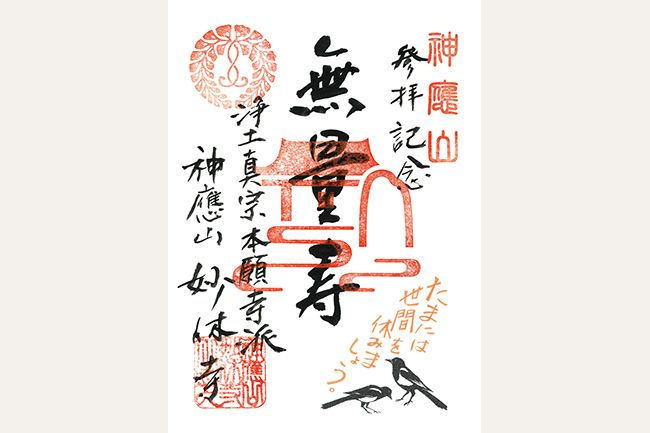 神應山
參拝記念
無量寿
浄土真宗本願寺派
神應山 妙休寺
たまには
世間を
休みま
しょう。